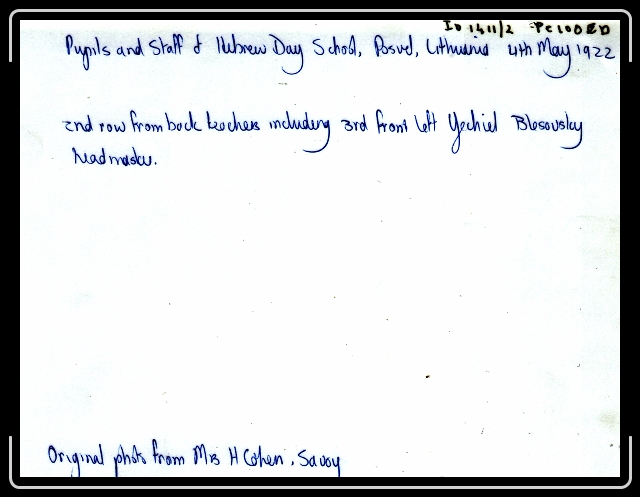 Pupils and Staff of Hebrew Day School, Posvel, Lithuania 4th May 1922
2nd row from back teachers including 3rd from left Yechiel Blosovsky
Headmaster.
Original photo from Mrs H Cohen, Savoy